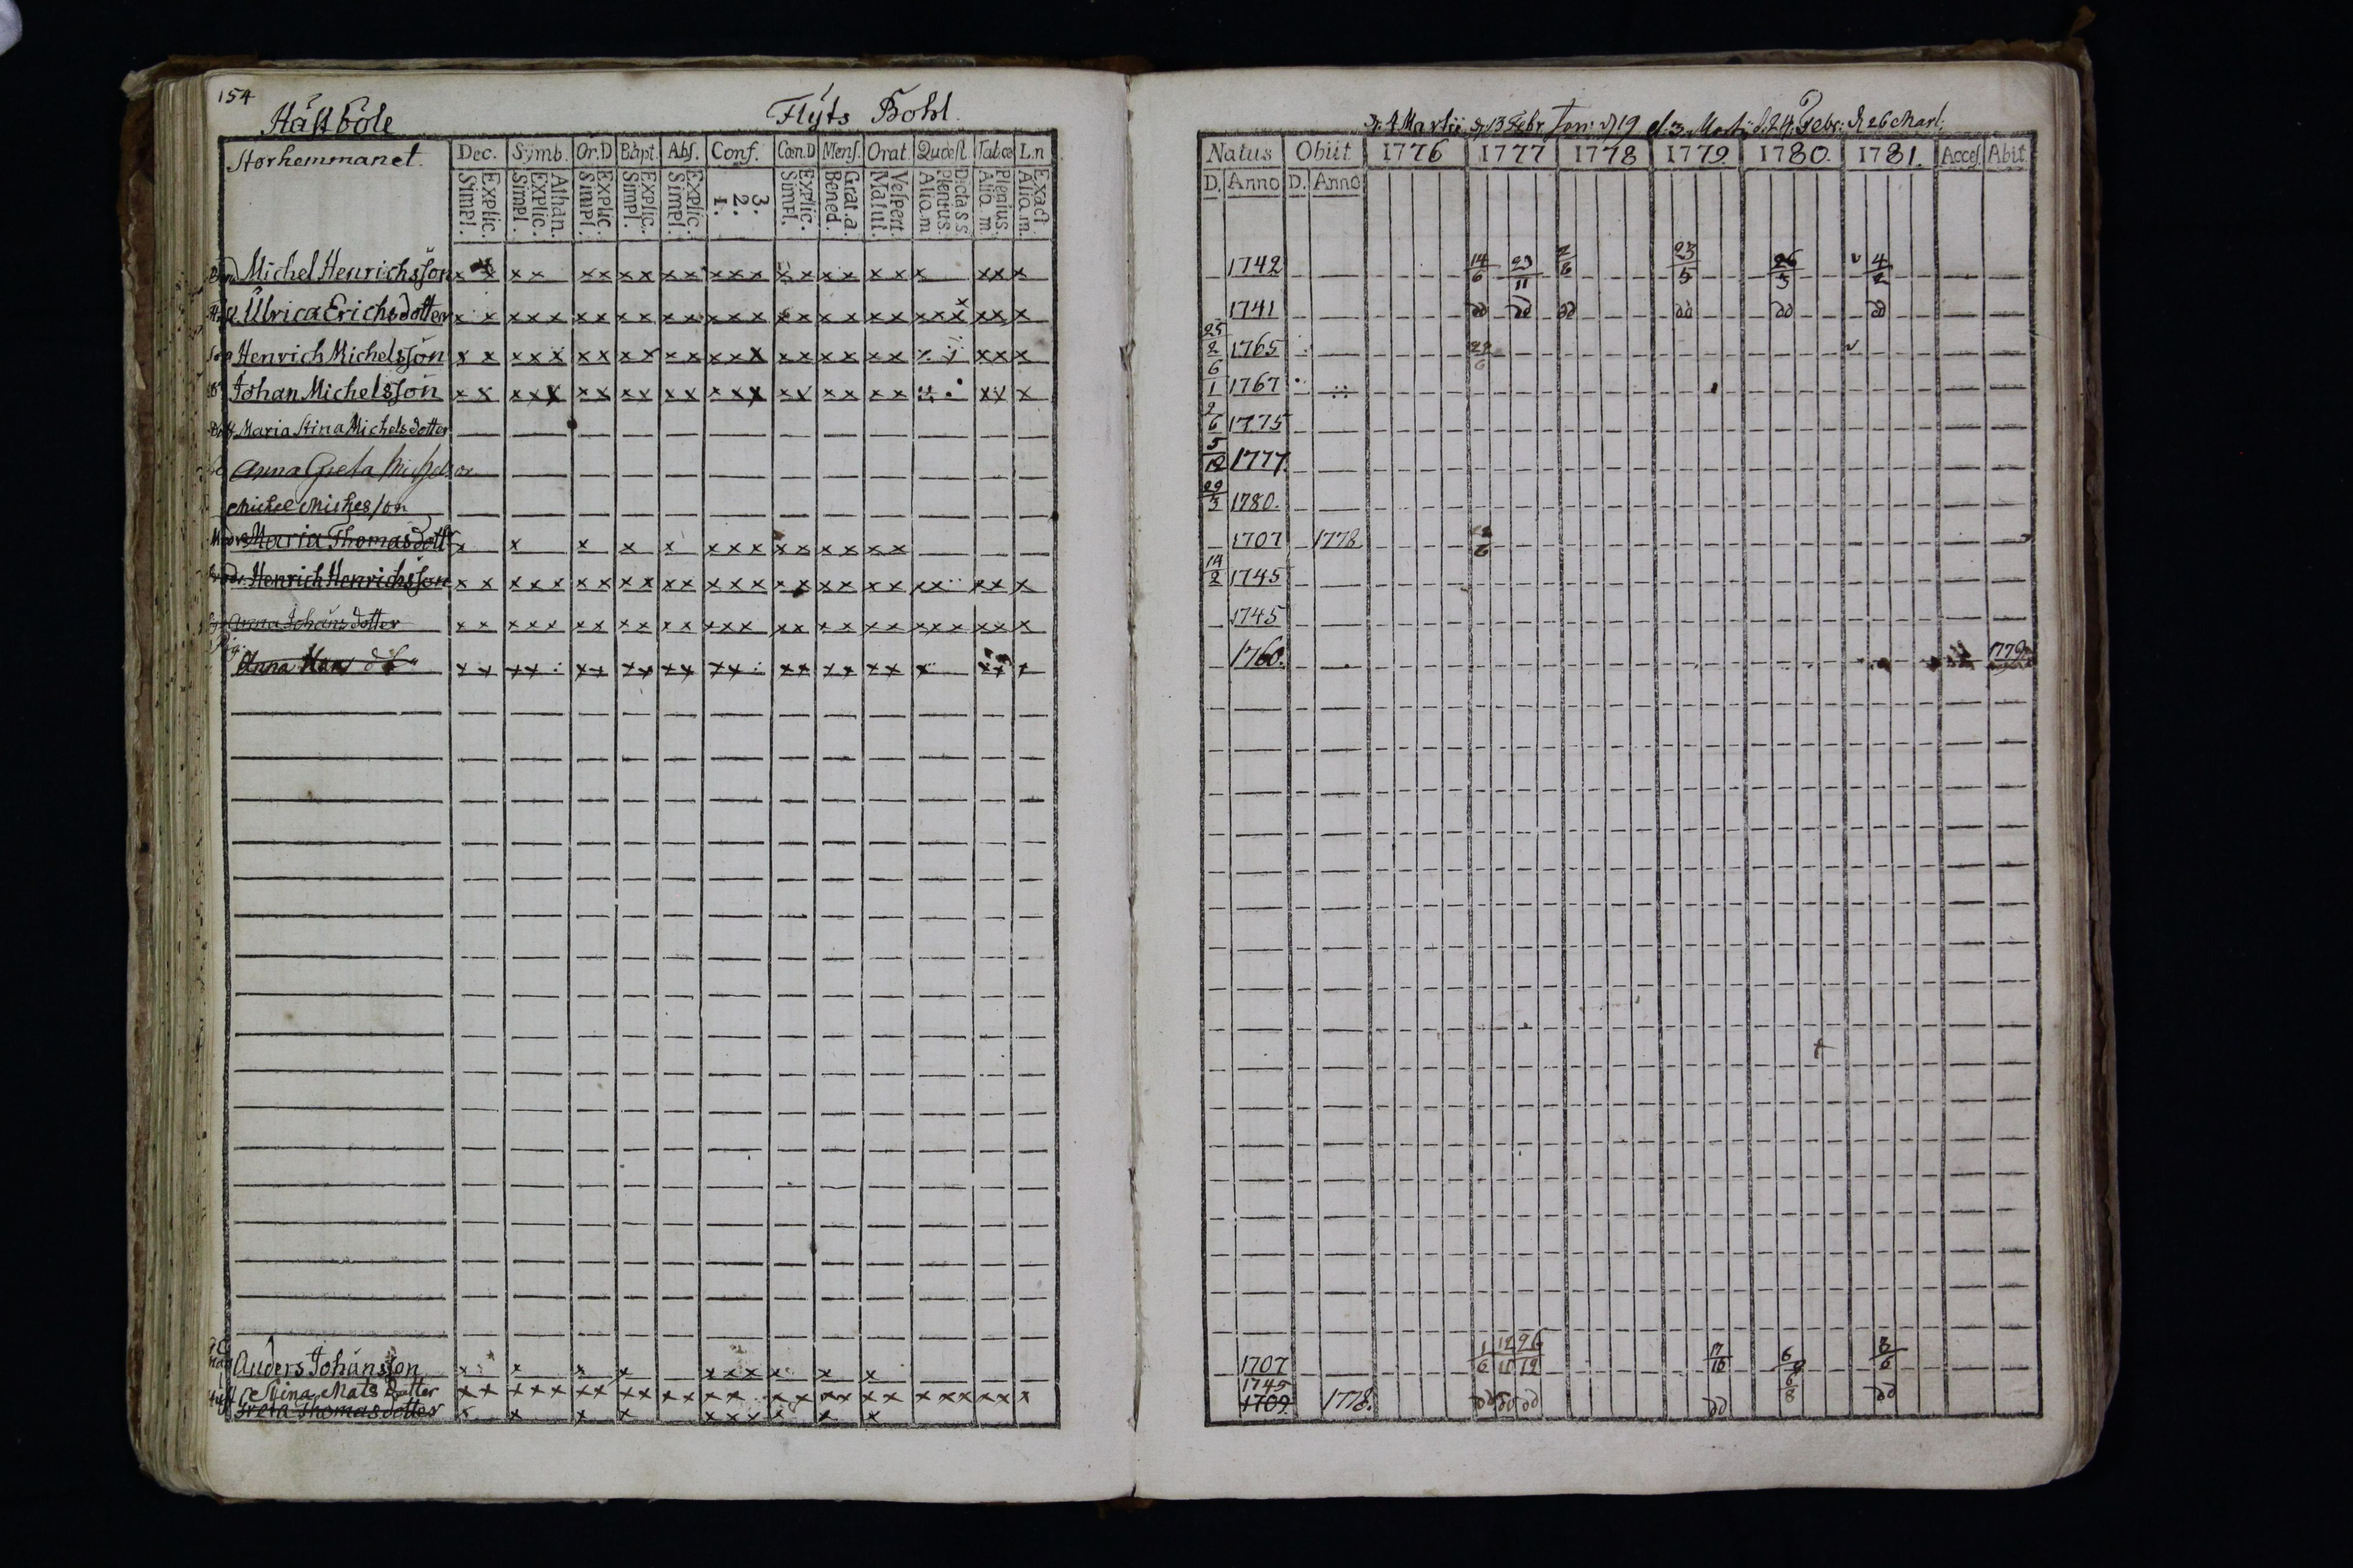 154
Hästböle Flyts Bohl
Storhemmanet. Dec. Symb. Or.D Bapt. Abs. Conf. Cœn.D Mens. Orat. Quæst. Tabœ L.n
Simpl. Explic. Simpl. Explic. Athan. Simpl. Explic. Simpl. Explic. Simpl. Explic. 1. 2. 3. Simpl. Explic. Bened. Grat.a. Matut. Vespert. Aliq.m Plenius. Dicta s.s. Aliq.m Plenius. Aliq.m Exact
Michel Henrichsson x x x x x x x x x x x x x x x x x x x x x x x
Ulrica Erichsdotter x x x x x x x x x x x x x x x x x x x x x x x x x x x x
Henrich Michelsson x x x x x x x x x x x x x x x x x x x x x x x x
Johan Michelsson x x x x x x x x x x x x x x x x x x x x x x x x
Maria Stina Michelsdotter
Anna Greta
Michel Michesson
Maria Thomasdott x x x x x x x x x x x x x x
Henrich Henrichsson x x x x x x x x x x x x x x x x x x x x x x x x x x
Anna Johansdotter x x x x x x x x x x x x x x x x x x x x x x x x x x x
Pig.
Anna Hans dr x x x x x x x x x x x x x x x x x x x x x x x x
Anders Johansson x x x x x x x x x x
Stina Mats Dotter x x x x x x x x x x x x x x x x x x x x x x x x x x
Greta Thomasdotter x x x x x x x x x x
d. 4 Martii d. 13 Febr d 19 d. 3. Marti d. 24. Febr. d. 26 Mart.
Natus Obiit 1776 1777 1778 1779. 1780. 1781. Acces. Abit.
D. Anno D. Anno
1742 14/6 23/11 23/5 26/3 4/2
1741 dd dd dd dd dd dd
25/2 1765
6/1 1767
2/6 1775
5/12 1777
29/3 1780.
1707 1778
14/2 1745
1745
1760. 1779
1707 1/6 17/10 3/6
1745 6/8
1709 1778. dd dd dd dd dd